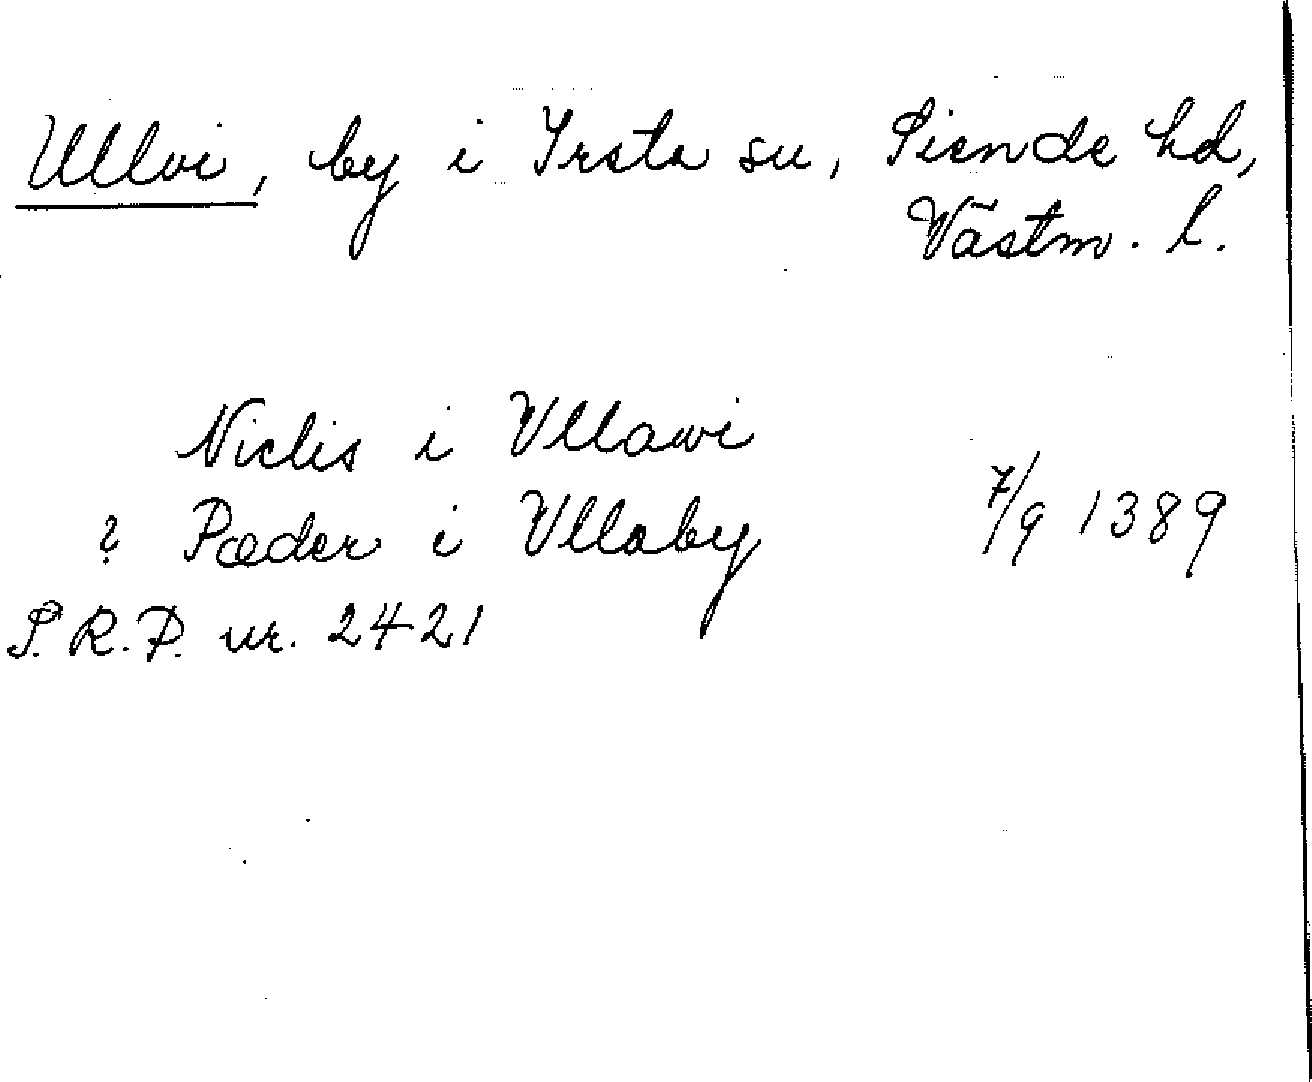 Ullvi, by i Irsta sn, Siende hd,
Västm. l.
Niclis i Vllawi
? Pæder i Vllaby 7/9 1389
S.R.P. nr. 2421